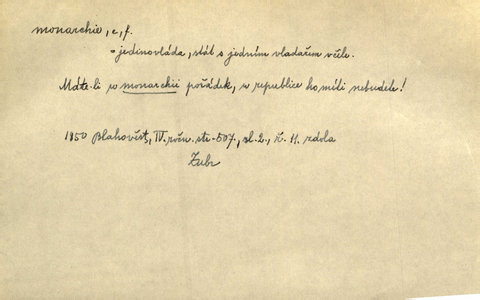 monarchie, e, f.
= jedinovláda, stát s jedním vladařem v čele.
Máte-li w monarchii pořádek, w republice ho míti nebudete!
1850 Blahověst, IV. ročn. str. 507, sl. 2., ř. 11. zdola
Zubr